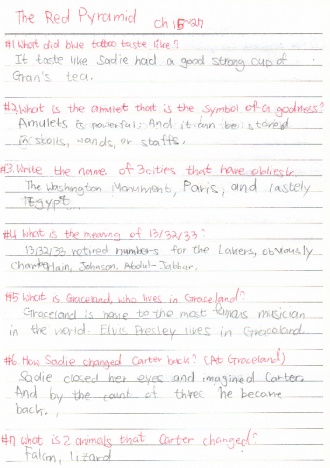 The Red Pyramid Ch 15~27
#1 What did blue tattoo taste like?
It taste like Sadie had a good strong cup of
Gran's tea.
#2. What is the amulet that is the symbol of a goodness?
Amulets is powerful. And it can be stored
in skolls, wands, or staffs.
#3. Write the name of 3 cities that have oblies
The Washington Monument, Paris, and lastely
Egypt.
#4 What is the meaning of 13/32/33?
13/32/33 retired numbers for the Lakers, obviously
Chamberlain, Johnson, Abdul-Jabbar.
#5 What is Graceland, who lives in Graceland?
Graceland is home to the most famous musician
in the world. Elvis Presley lives in Graceland.
#6. How Sadie changed Carter back? (At Graceland)
Sadie closed her eyes and imagined Carter.
And by the count of three he became
back.
#7 What is 2 animals that Carter changed?
Falcon, lizard